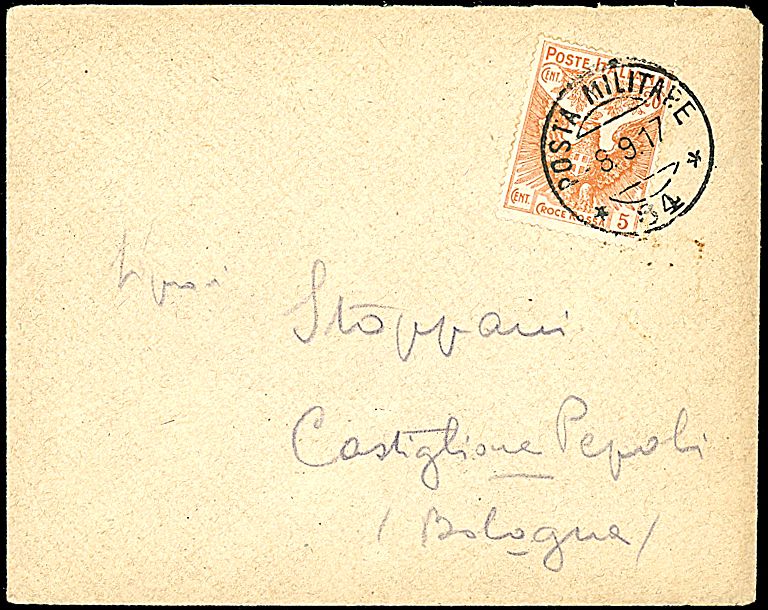 POSTE ITALIANE
CENT. 20
POSTA MILITARE
8.9.17
* 54 *
CENT. 5
CROCE ROSSA
Stoppani
Castiglione Pepoli
(Bologna)